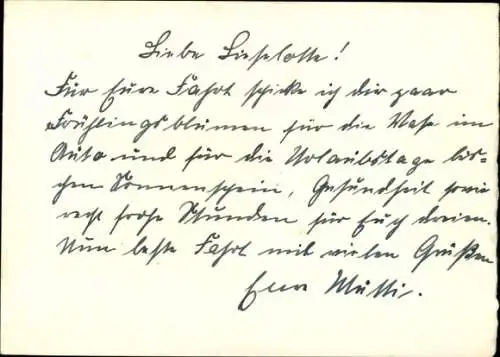 Liebe Lieselotte!
Für Eure Fahrt schicke ich dir paar
Frühlingsblumen für die Vase im
Auto und für die Urlaubstage bis-
chen Sonnenschein, Gesundheit sowie
recht frohe Stunden für Euch dreien.
Nun beste Fahrt mit vielen Grüßen
Eure Mutti.